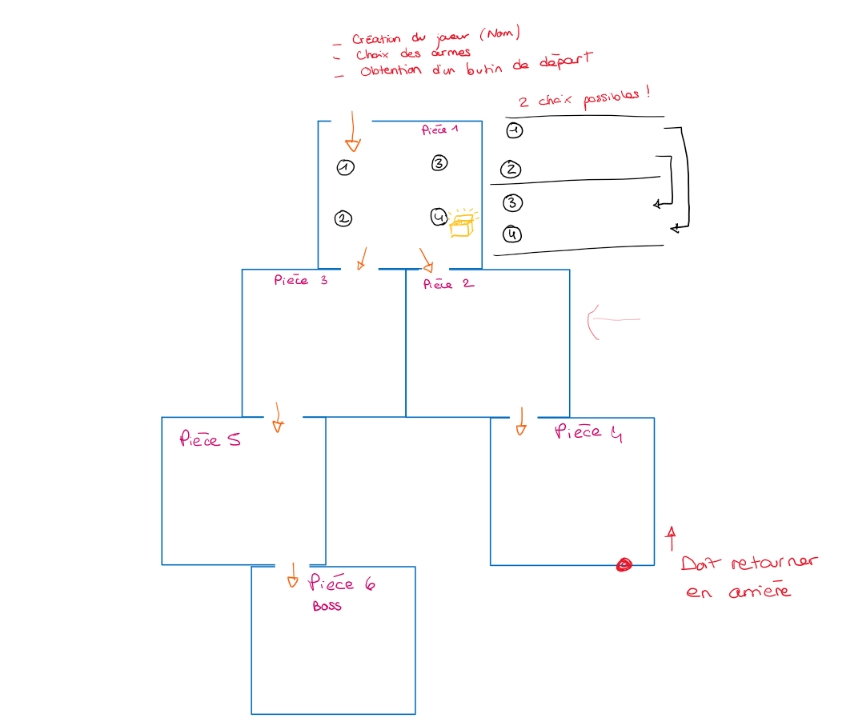 - Création du joueur (Nom)
- Choix des armes
- Obtention d'un butin de départ
2 choix possibles !
Pièce 1
1
3
2
4
1
2
3
4
Pièce 3
Pièce 2
Pièce 5
Pièce 4
Doit retourner
en arrière
Pièce 6
Boss